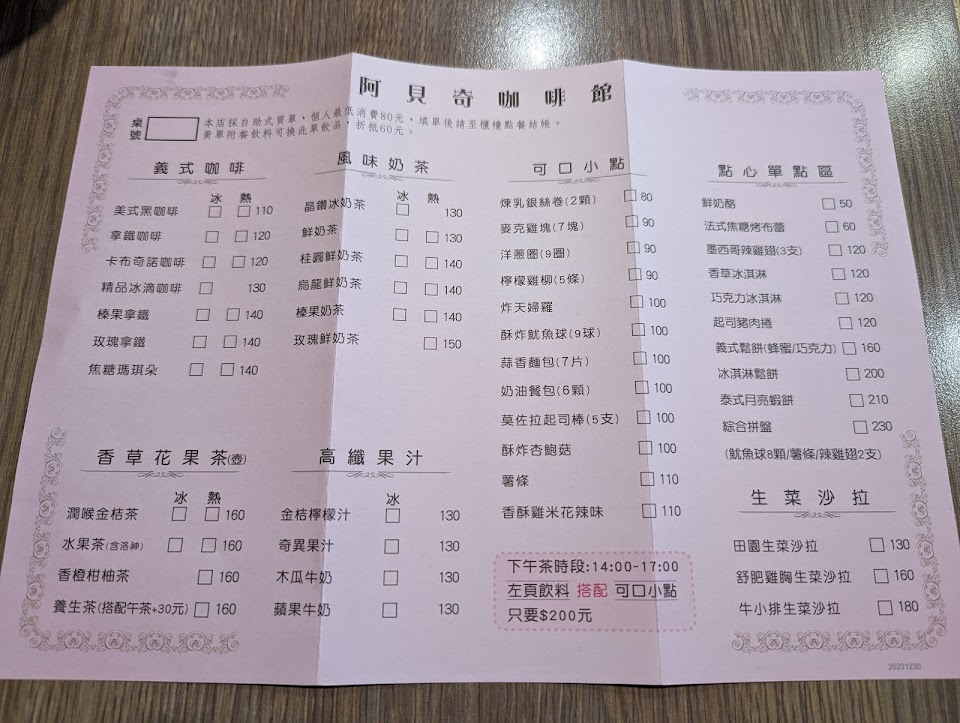 阿貝奇咖啡館
桌號
本店採自助式買單，個人最低消費80元，填單後請至櫃檯點餐結帳。
黃單附餐飲料可換此單飲品，折抵60元。
義式咖啡
冰 熱
美式黑咖啡 110
拿鐵咖啡 120
卡布奇諾咖啡 120
精品冰滴咖啡 130
榛果拿鐵 140
玫瑰拿鐵 140
焦糖瑪琪朵 140
風味奶茶
冰 熱
晶鑽冰奶茶 130
鮮奶茶 130
桂圓鮮奶茶 140
烏龍鮮奶茶 140
榛果奶茶 140
玫瑰鮮奶茶 150
可口小點
煉乳銀絲卷(2顆) 80
麥克雞塊(7塊) 90
洋蔥圈(9圈) 90
檸檬雞柳(5條) 90
炸天婦羅 100
酥炸魷魚球(9球) 100
蒜香麵包(7片) 100
奶油餐包(6顆) 100
莫佐拉起司棒(5支) 100
酥炸杏鮑菇 100
薯條 110
香酥雞米花辣味 110
點心單點區
鮮奶酪 50
法式焦糖烤布蕾 60
墨西哥辣雞翅(3支) 120
香草冰淇淋 120
巧克力冰淇淋 120
起司豬肉捲 120
義式鬆餅(蜂蜜/巧克力) 160
冰淇淋鬆餅 200
泰式月亮蝦餅 210
綜合拼盤 230
(魷魚球8顆/薯條/辣雞翅2支)
香草花果茶(壺)
冰 熱
潤喉金桔茶 160
水果茶(含洛神) 160
香橙柑柚茶 160
養生茶(搭配午茶+30元) 160
高纖果汁
冰
金桔檸檬汁 130
奇異果汁 130
木瓜牛奶 130
蘋果牛奶 130
下午茶時段:14:00-17:00
左頁飲料 搭配 可口小點
只要$200元
生菜沙拉
田園生菜沙拉 130
舒肥雞胸生菜沙拉 160
牛小排生菜沙拉 180
20231230